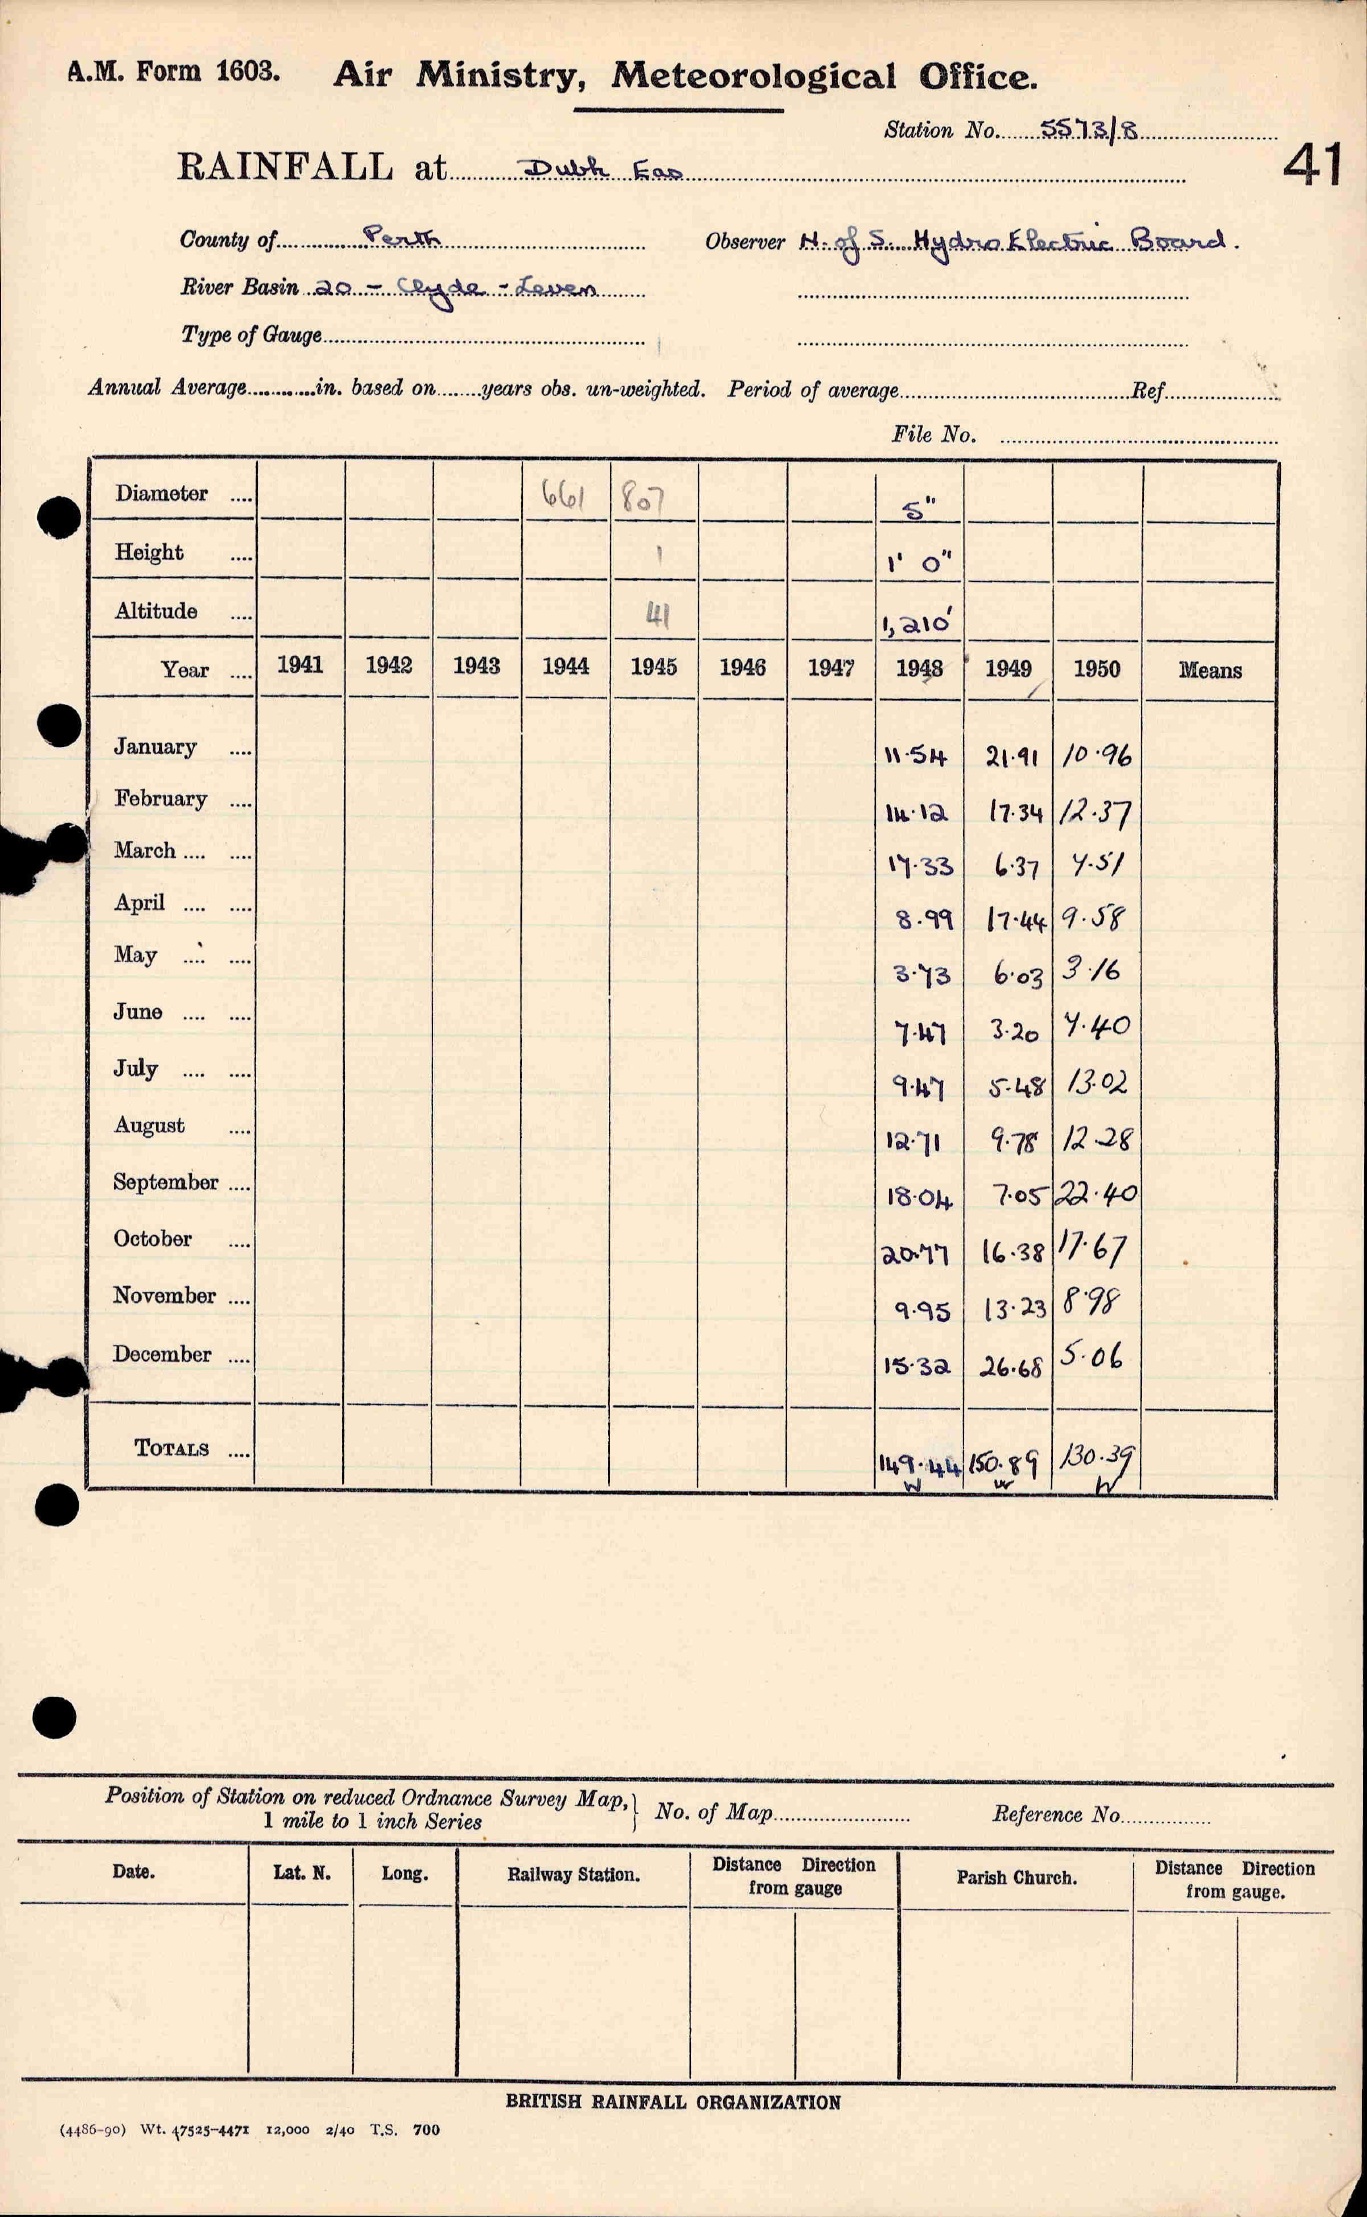 A.M. Form 1603. Air Ministry, Meteorological Office.
Station No. 5573/8
RAINFALL at Dubh Eas 41
County of Perth Observer N. of S. Hydro Electric Board.
River Basin 20 - Clyde - Leven
Type of Gauge
Annual Average in. based on years obs. un-weighted. Period of average Ref.
File No.
Diameter 661 807 5"
Height 1 1' 0"
Altitude 41 1,210'
Year 1941 1942 1943 1944 1945 1946 1947 1948 1949 1950 Means
January 11.54 21.91 10.96
February 14.12 17.34 12.37
March 17.33 6.37 7.51
April 8.99 17.44 9.58
May 3.73 6.03 3.16
June 7.47 3.20 7.40
July 9.47 5.48 13.02
August 12.71 9.78 12.28
September 18.04 7.05 22.40
October 20.77 16.38 17.67
November 9.95 13.23 8.98
December 15.32 26.68 5.06
TOTALS 149.44 150.89 130.39
W W W
Position of Station on reduced Ordnance Survey Map, 1 mile to 1 inch Series } No. of Map Reference No.
Date. Lat. N. Long. Railway Station. Distance Direction from gauge Parish Church. Distance Direction from gauge.
BRITISH RAINFALL ORGANIZATION
(4486-90) Wt. 47525-4471 12,000 2/40 T.S. 700